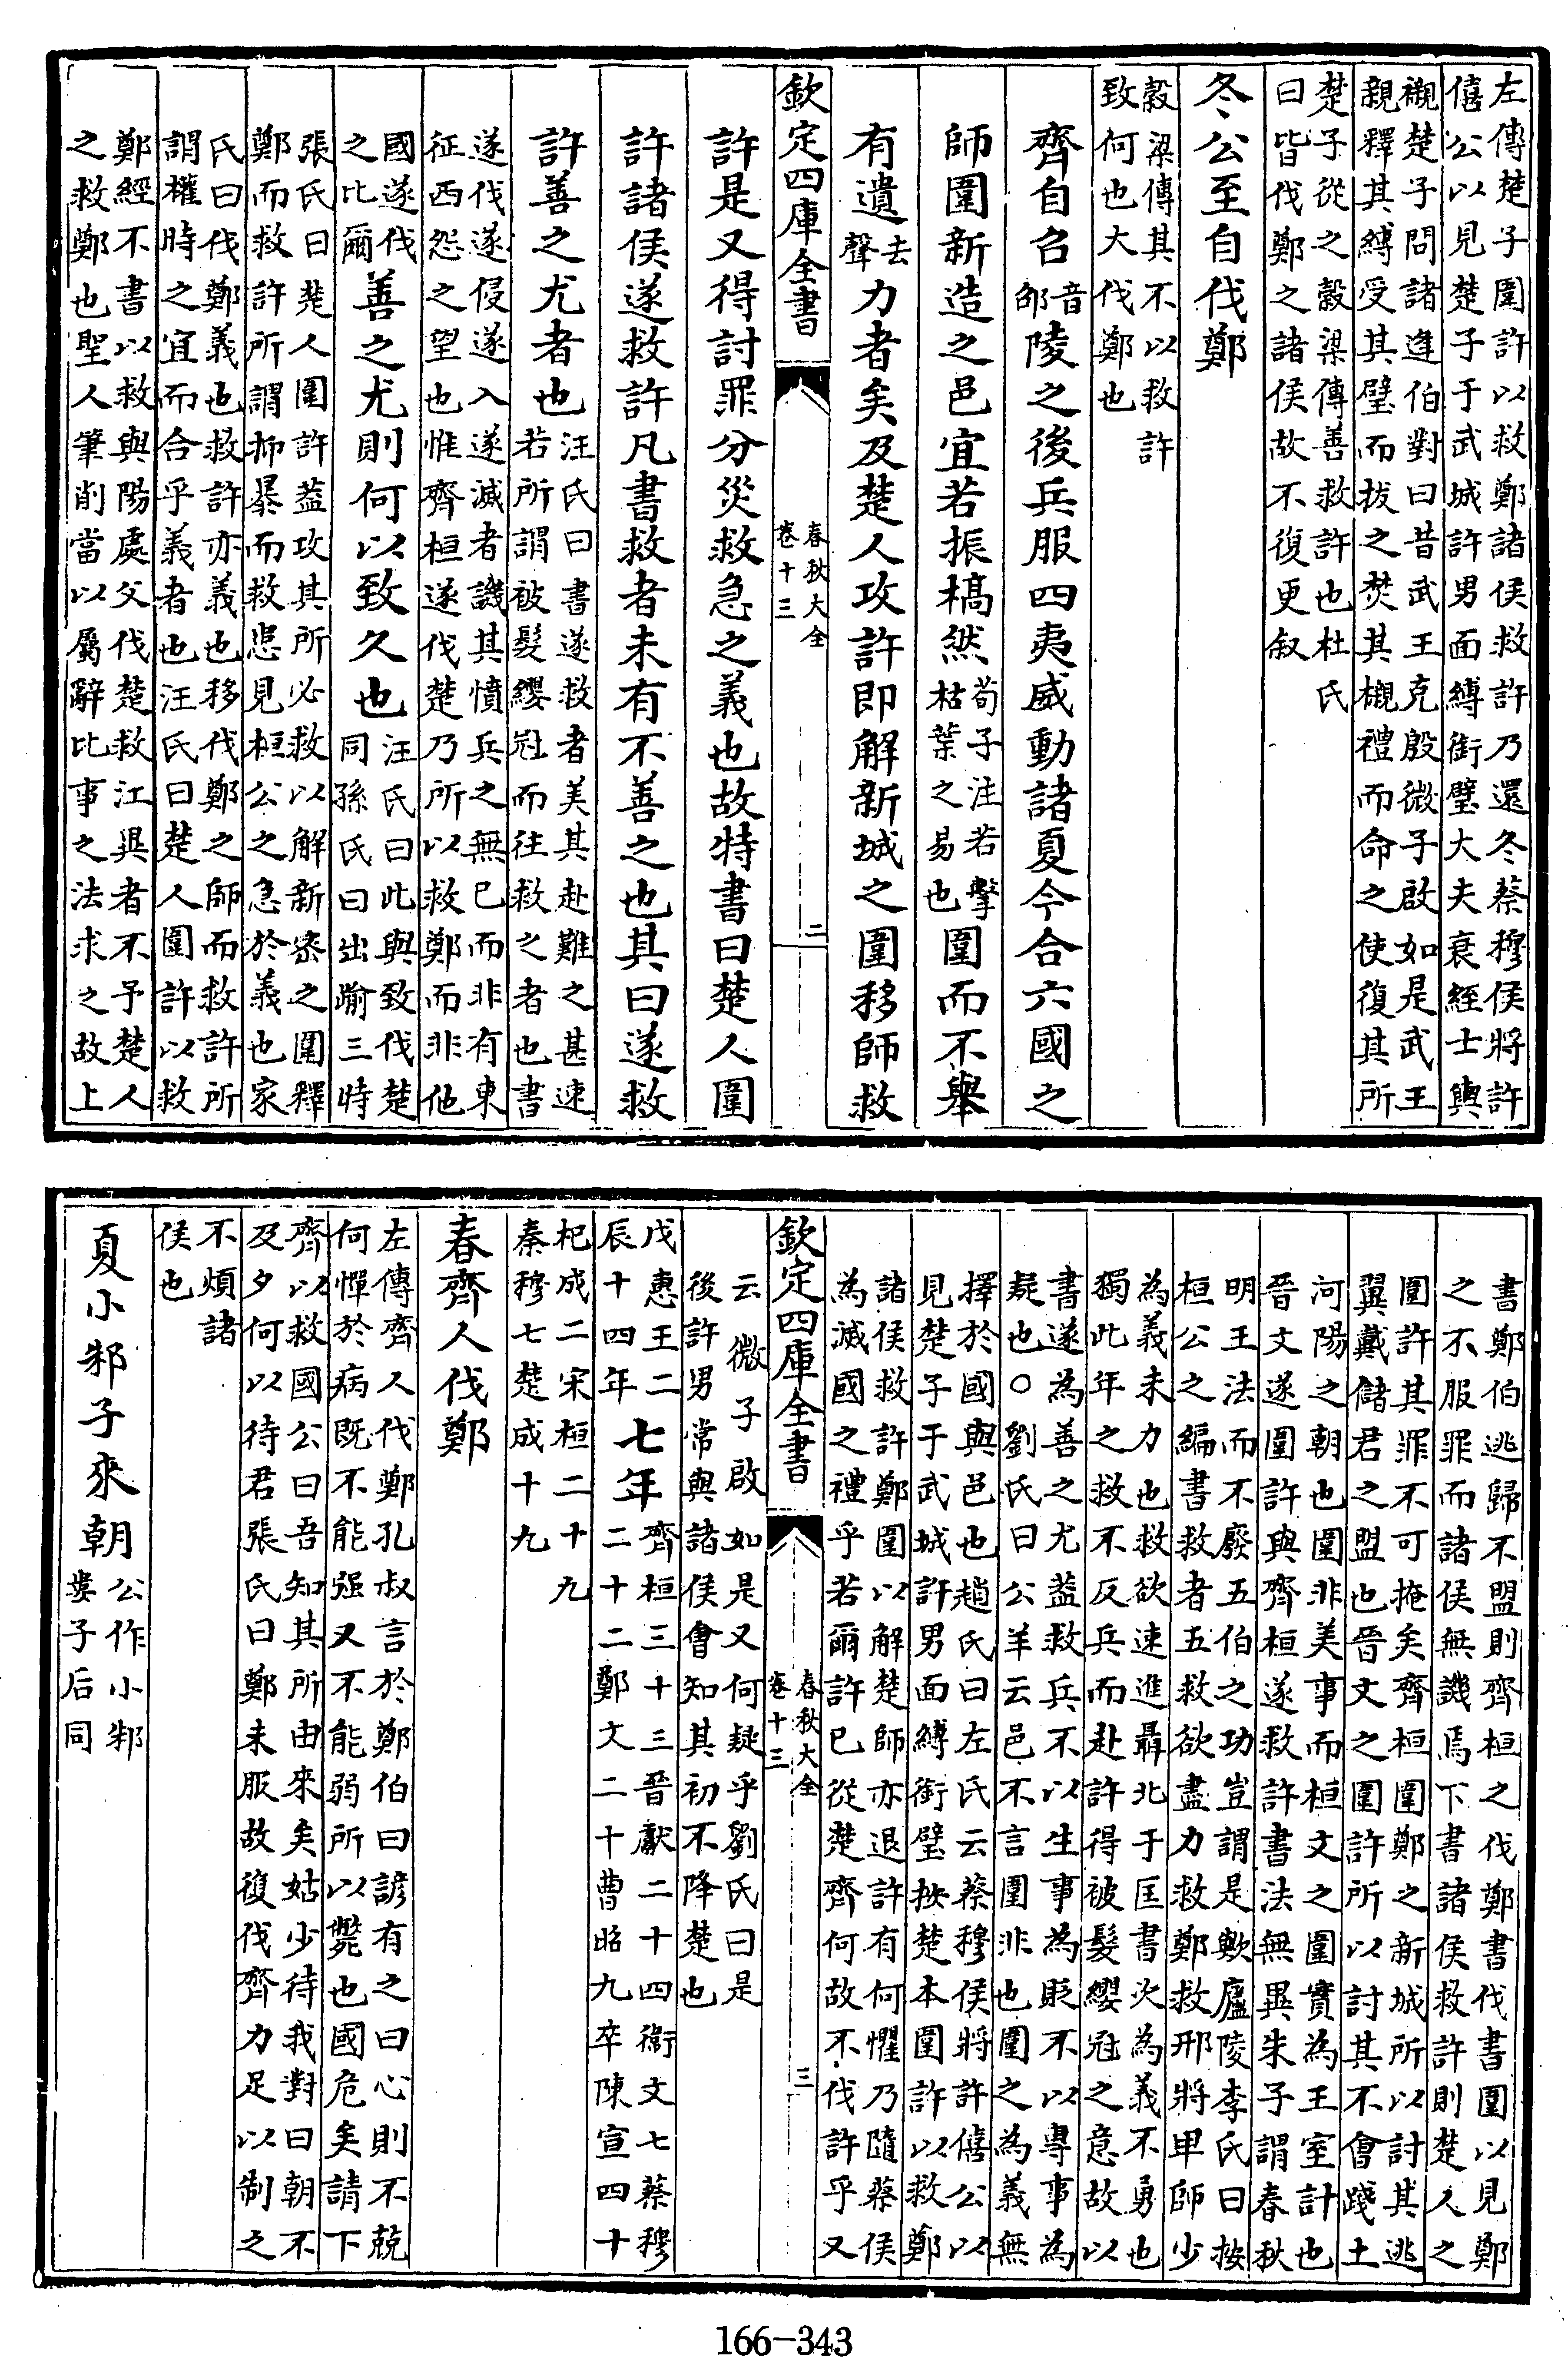 左傳楚子圍許以救鄭諸侯救許乃還冬蔡穆侯將許
僖公以見楚子于武城許男面縛銜璧大夫衰絰士輿
櫬楚子問諸逢伯對曰昔武王克殷微子啟如是武王
親釋其縛受其璧而拔之焚其櫬禮而命之使復其所
楚子從之穀梁傳善救許也杜氏
曰皆伐鄭之諸侯故不復更叙
冬公至自伐鄭
穀梁傳其不以救許
致何也大伐鄭也
齊自召音邵陵之後兵服四夷威動諸夏今合六國之
師圍新造之邑宜若振槁然荀子注若擊枯葉之易也圍而不舉
有遺去聲力者矣及楚人攻許即解新城之圍移師救
欽定四庫全書
春秋大全
卷十三
二
許是又得討罪分災救急之義也故特書曰楚人圍
許諸侯遂救許凡書救者未有不善之也其曰遂救
許善之尤者也汪氏曰書遂救者美其赴難之甚速若所謂被髮纓冠而往救之者也書
遂伐遂侵遂入遂滅者譏其憤兵之無已而非有東
征西怨之望也惟齊桓遂伐楚乃所以救鄭而非他
國遂伐之比爾善之尤則何以致久也汪氏曰此與致伐楚同孫氏曰出踰三時
張氏曰楚人圍許葢攻其所必救以解新密之圍釋
鄭而救許所謂抑暴而救患見桓公之急於義也家
氏曰伐鄭義也救許亦義也移伐鄭之師而救許所
謂權時之宜而合乎義者也汪氏曰楚人圍許以救
鄭經不書以救與陽處父伐楚救江異者不予楚人
之救鄭也聖人筆削當以屬辭比事之法求之故上
書鄭伯逃歸不盟則齊桓之伐鄭書伐書圍以見鄭
之不服罪而諸侯無譏焉下書諸侯救許則楚人之
圍許其罪不可掩矣齊桓圍鄭之新城所以討其逃
翼戴儲君之盟也晉文之圍許所以討其不會踐土
河陽之朝也圍非美事而桓文之圍實為王室計也
晉文遂圍許與齊桓遂救許書法無異朱子謂春秋
明王法而不廢五伯之功豈謂是歟廬陵李氏曰按
桓公之編書救者五救欲盡力救鄭救邢將卑師少
為義未力也救欲速進聶北于匡書次為義不勇也
獨此年之救不反兵而赴許得被髮纓冠之意故以
書遂為善之尤葢救兵不以生事為貶不以專事為
疑也○劉氏曰公羊云邑不言圍非也圍之為義無
擇於國與邑也趙氏曰左氏云蔡穆侯將許僖公以
見楚子于武城許男面縛銜璧按楚本圍許以救鄭
諸侯救許鄭圍以解楚師亦退許有何懼乃隨蔡侯
為滅國之禮乎若爾許已從楚齊何故不伐許乎又
欽定四庫全書
春秋大全
卷十三
三
云微子啟如是又何疑乎劉氏曰是
後許男常與諸侯會知其初不降楚也
戊辰惠王二十四年七年齊桓三十三晉獻二十四衞文七蔡穆二十二鄭文二十曹昭九卒陳宣四十
杞成二宋桓二十九
秦穆七楚成十九
春齊人伐鄭
左傳齊人伐鄭孔叔言於鄭伯曰諺有之曰心則不兢
何憚於病既不能强又不能弱所以斃也國危矣請下
齊以救國公曰吾知其所由來矣姑少待我對曰朝不
及夕何以待君張氏曰鄭未服故復伐齊力足以制之
不煩諸
侯也
夏小邾子來朝公作小邾婁子后同
166-343